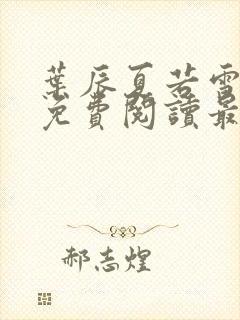 葉辰夏若雪
免費閱讀最
郝志煌